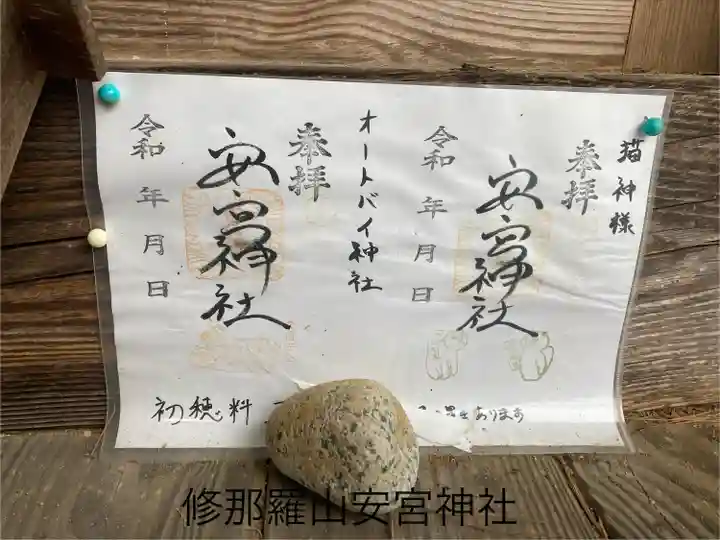 猫神様
奉拝
安宮神社
令和 年 月 日
オートバイ神社
奉拝
安宮神社
令和 年 月 日
初穂料
あります
修那羅山安宮神社